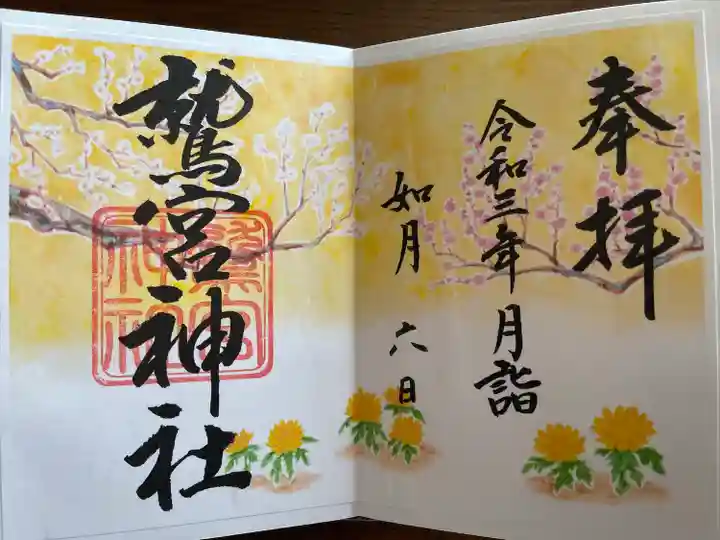 奉拝
令和三年月詣
如月六日
鷲宮神社
鷲宮
神社